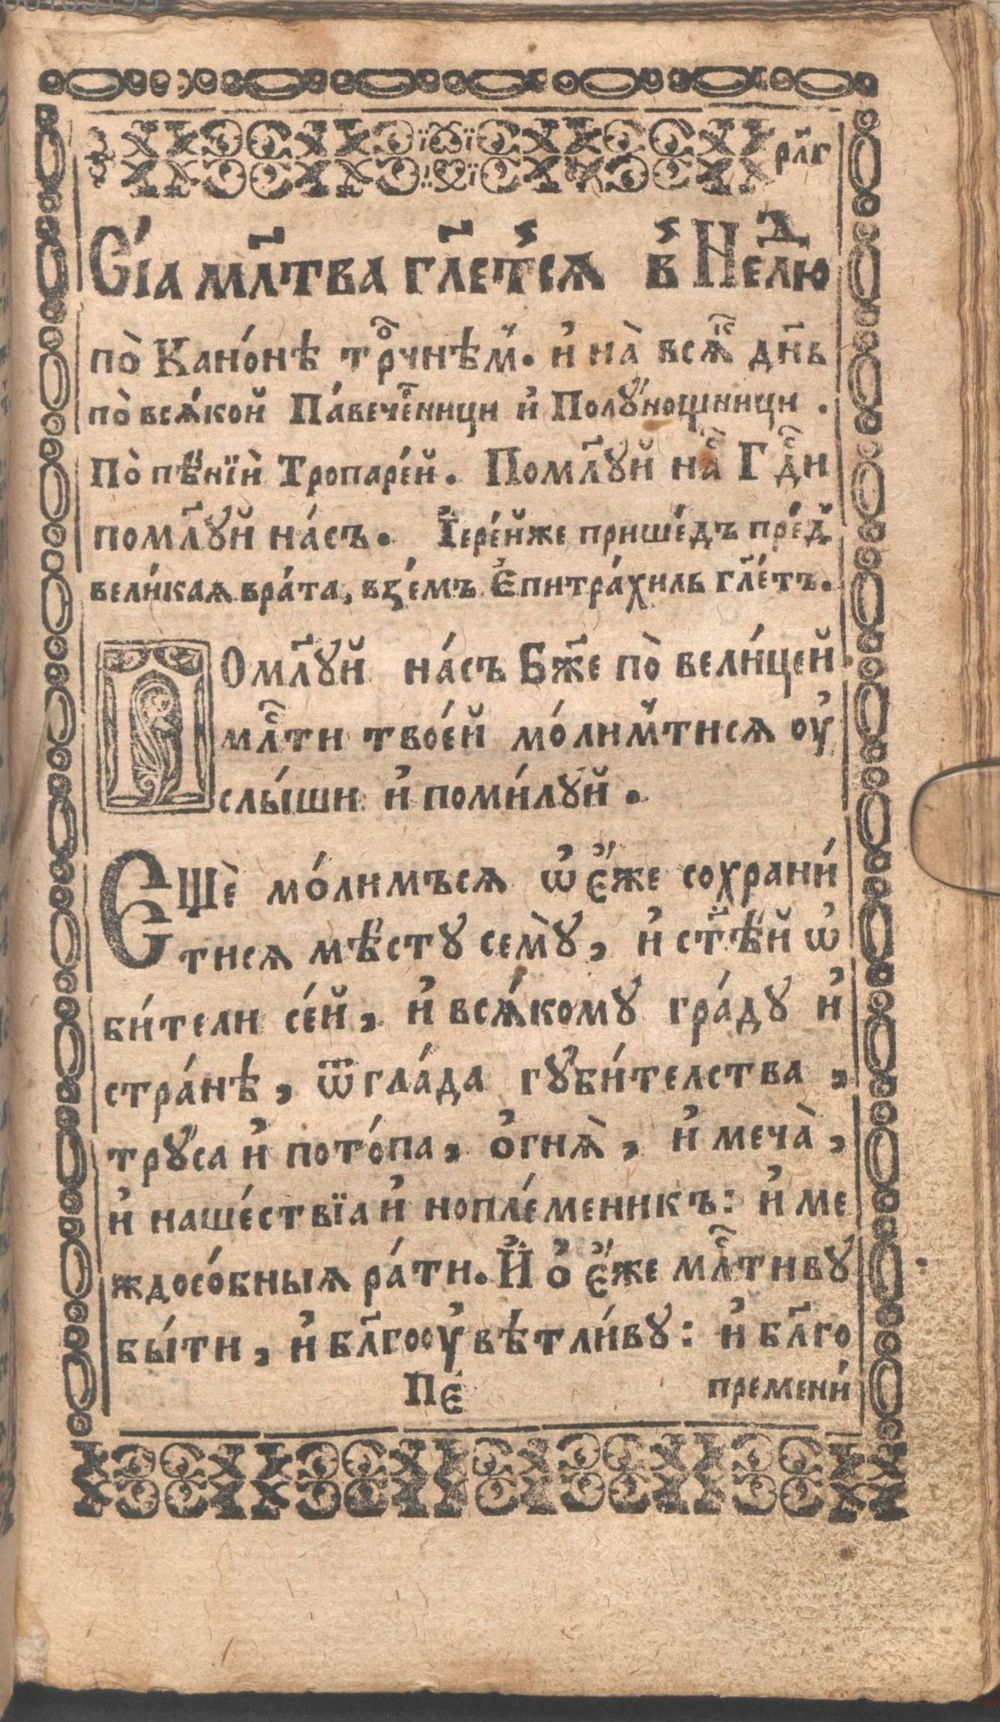 рл҃г
Сі́а мл҃тва гл҃етсѧ в Недⷧ҇ю
по̀ Кано́нѣ трⷪ҇чнѣм. и҆ на̀ всѧ дн҃ь
по̀ всѧ́кой Па́вече́рници и҆ Полу́нощници .
По̀ пѣ́нїй Тропаре́й. Помл҃уй на́с Гдⷭ҇и
помл҃уй на́съ. І҆ере́йже прише́дъ пре́д
вели́каѧ вра́та, взе́мъ Є҆питра́хиль гл҃е́тъ.
ПОмл҃уй на́съ Бж҃е по̀ вели́цей
млⷭ҇ти твое́й мо́лимтисѧ оу҆
слы́ши и҆ поми́луй .
Єщѐ мо́лимъсѧ ѡ҆ є҆́же сохрани́
тисѧ мѣ́сту сему̀, и҆ ст҃ѣ́й ѡ҆
би́тели се́й, и҆ всѧ́кому гра́ду и҆
стра́нѣ, ѿ гла́да губи́телства ,
тру́са и҆ пото́па, о҆гнѧ̀, и҆ меча̀,
и҆ наше́ствїа и҆ нопле́меникъ: и҆ ме
ждосо́бныѧ ра́ти. И҆ о҆ є҆́же млⷭ҇тиву
бы́ти, и҆ бл҃гооу҆вѣ́тли́ву: и҆ бл҃го
Пє́ премени́